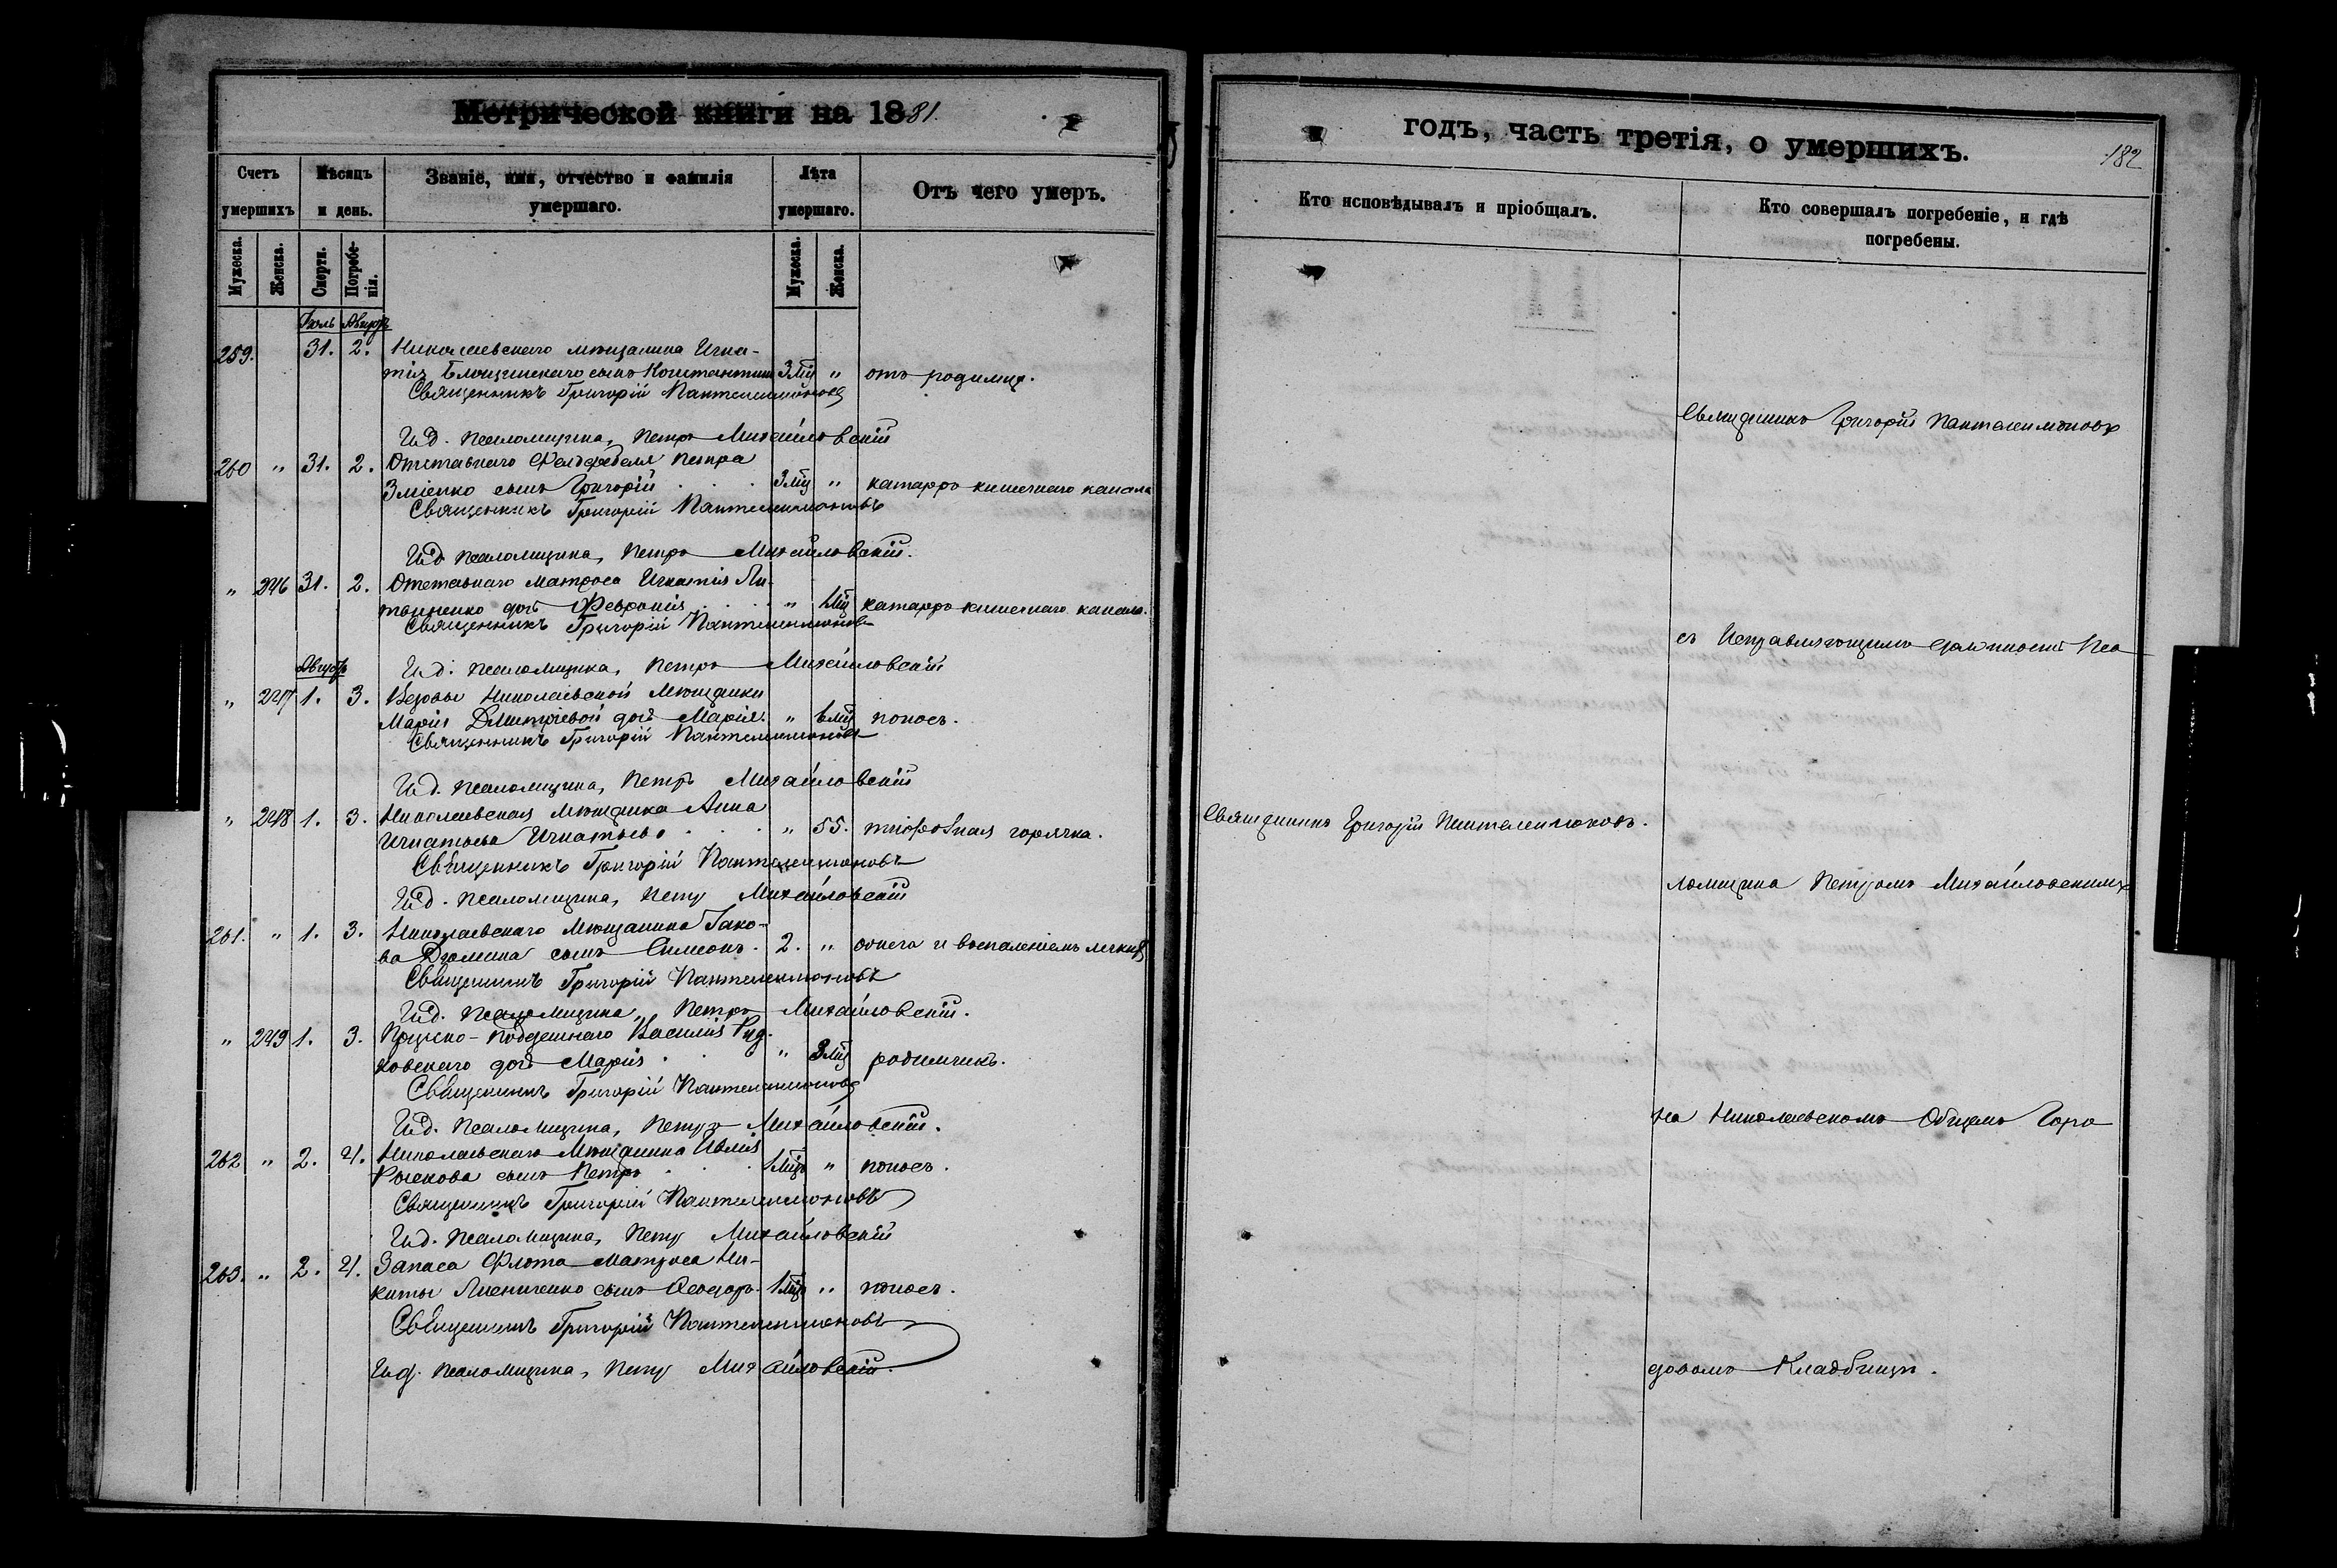 Метрической книги на 1881.
Счетъ умершихъ
Мѣсяцъ и день.
Званіе, имя, отчество и фамилія умершаго.
Лѣта умершаго.
Отъ чего умеръ.
Мужеска. Женска. Смерти. Погребенія. Мужеска. Женска.
Іюль Августъ
259. 31. 2. Николаевскаго мѣщанина Игна-
тія сынъ Константинъ 3 мц " отъ родимца.
Священникъ Григорій Пантелеимоновъ
И.д. псаломщика, Петръ Михайловскій
260 " 31. 2. Отставнаго Фельдфебеля Петра
Зміенко сынъ Григорій 3 мц " катарръ кишечнаго канала
Священникъ Григорій Пантелеимоновъ
И.д. псаломщика, Петръ Михайловскій.
" 246 31. 2. Отставнаго матроса Игнатія Ли-
твиненко дочь Февронія " 1 мц катарръ кишечнаго канала.
Священникъ Григорій Пантелеимоновъ
Августъ
И.д. псаломщика, Петръ Михайловскій
" 247 1. 3. Вдовы Николаевской Мѣщанки
Маріи Дмитріевой дочь Марія. " 6 мц поносъ.
Священникъ Григорій Пантелеимоновъ
И.д. псаломщика, Петръ Михайловскій
" 248 1. 3. Николаевская Мѣщанка Анна
Игнатьева Игнатьева " 55. тифозная горячка.
Священникъ Григорій Пантелеимоновъ
И.д. псаломщика, Петръ Михайловскій
261. " 1. 3. Николаевскаго Мѣщанина Іако-
ва Дюмина сынъ Симеонъ. 2. " воспаленіемъ легкихъ
Священникъ Григорій Пантелеимоновъ
И.д. псаломщика, Петръ Михайловскій.
" 249 1. 3. Василія Руд-
ковскаго дочь Марія " 3 мц родимчикъ.
Священникъ Григорій Пантелеимоновъ
И.д. псаломщика, Петръ Михайловскій.
262 " 2. 4. Николаевскаго Мѣщанина
Рыскова сынъ Петръ 1 мцъ " поносъ.
Священникъ Григорій Пантелеимоновъ
И.д. псаломщика, Петръ Михайловскій
263. " 2. 4. Запаса Флота Матроса Ни-
киты сынъ Ѳеодоръ 1 мцъ " поносъ.
Священникъ Григорій Пантелеимоновъ
И.д. псаломщика, Петръ Михайловскій.
годъ, часть третія, о умершихъ.
182
Кто исповѣдывалъ и пріобщалъ.
Кто совершалъ погребеніе, и гдѣ погребены.
Священникъ Григорій Пантелеимоновъ
съ Исправляющимъ должность Пса
Священникъ Григорій Пантелеимоновъ.
ломщика Петромъ Михайловскимъ
на Николаевскомъ Общемъ Горо
довомъ Кладбищѣ.